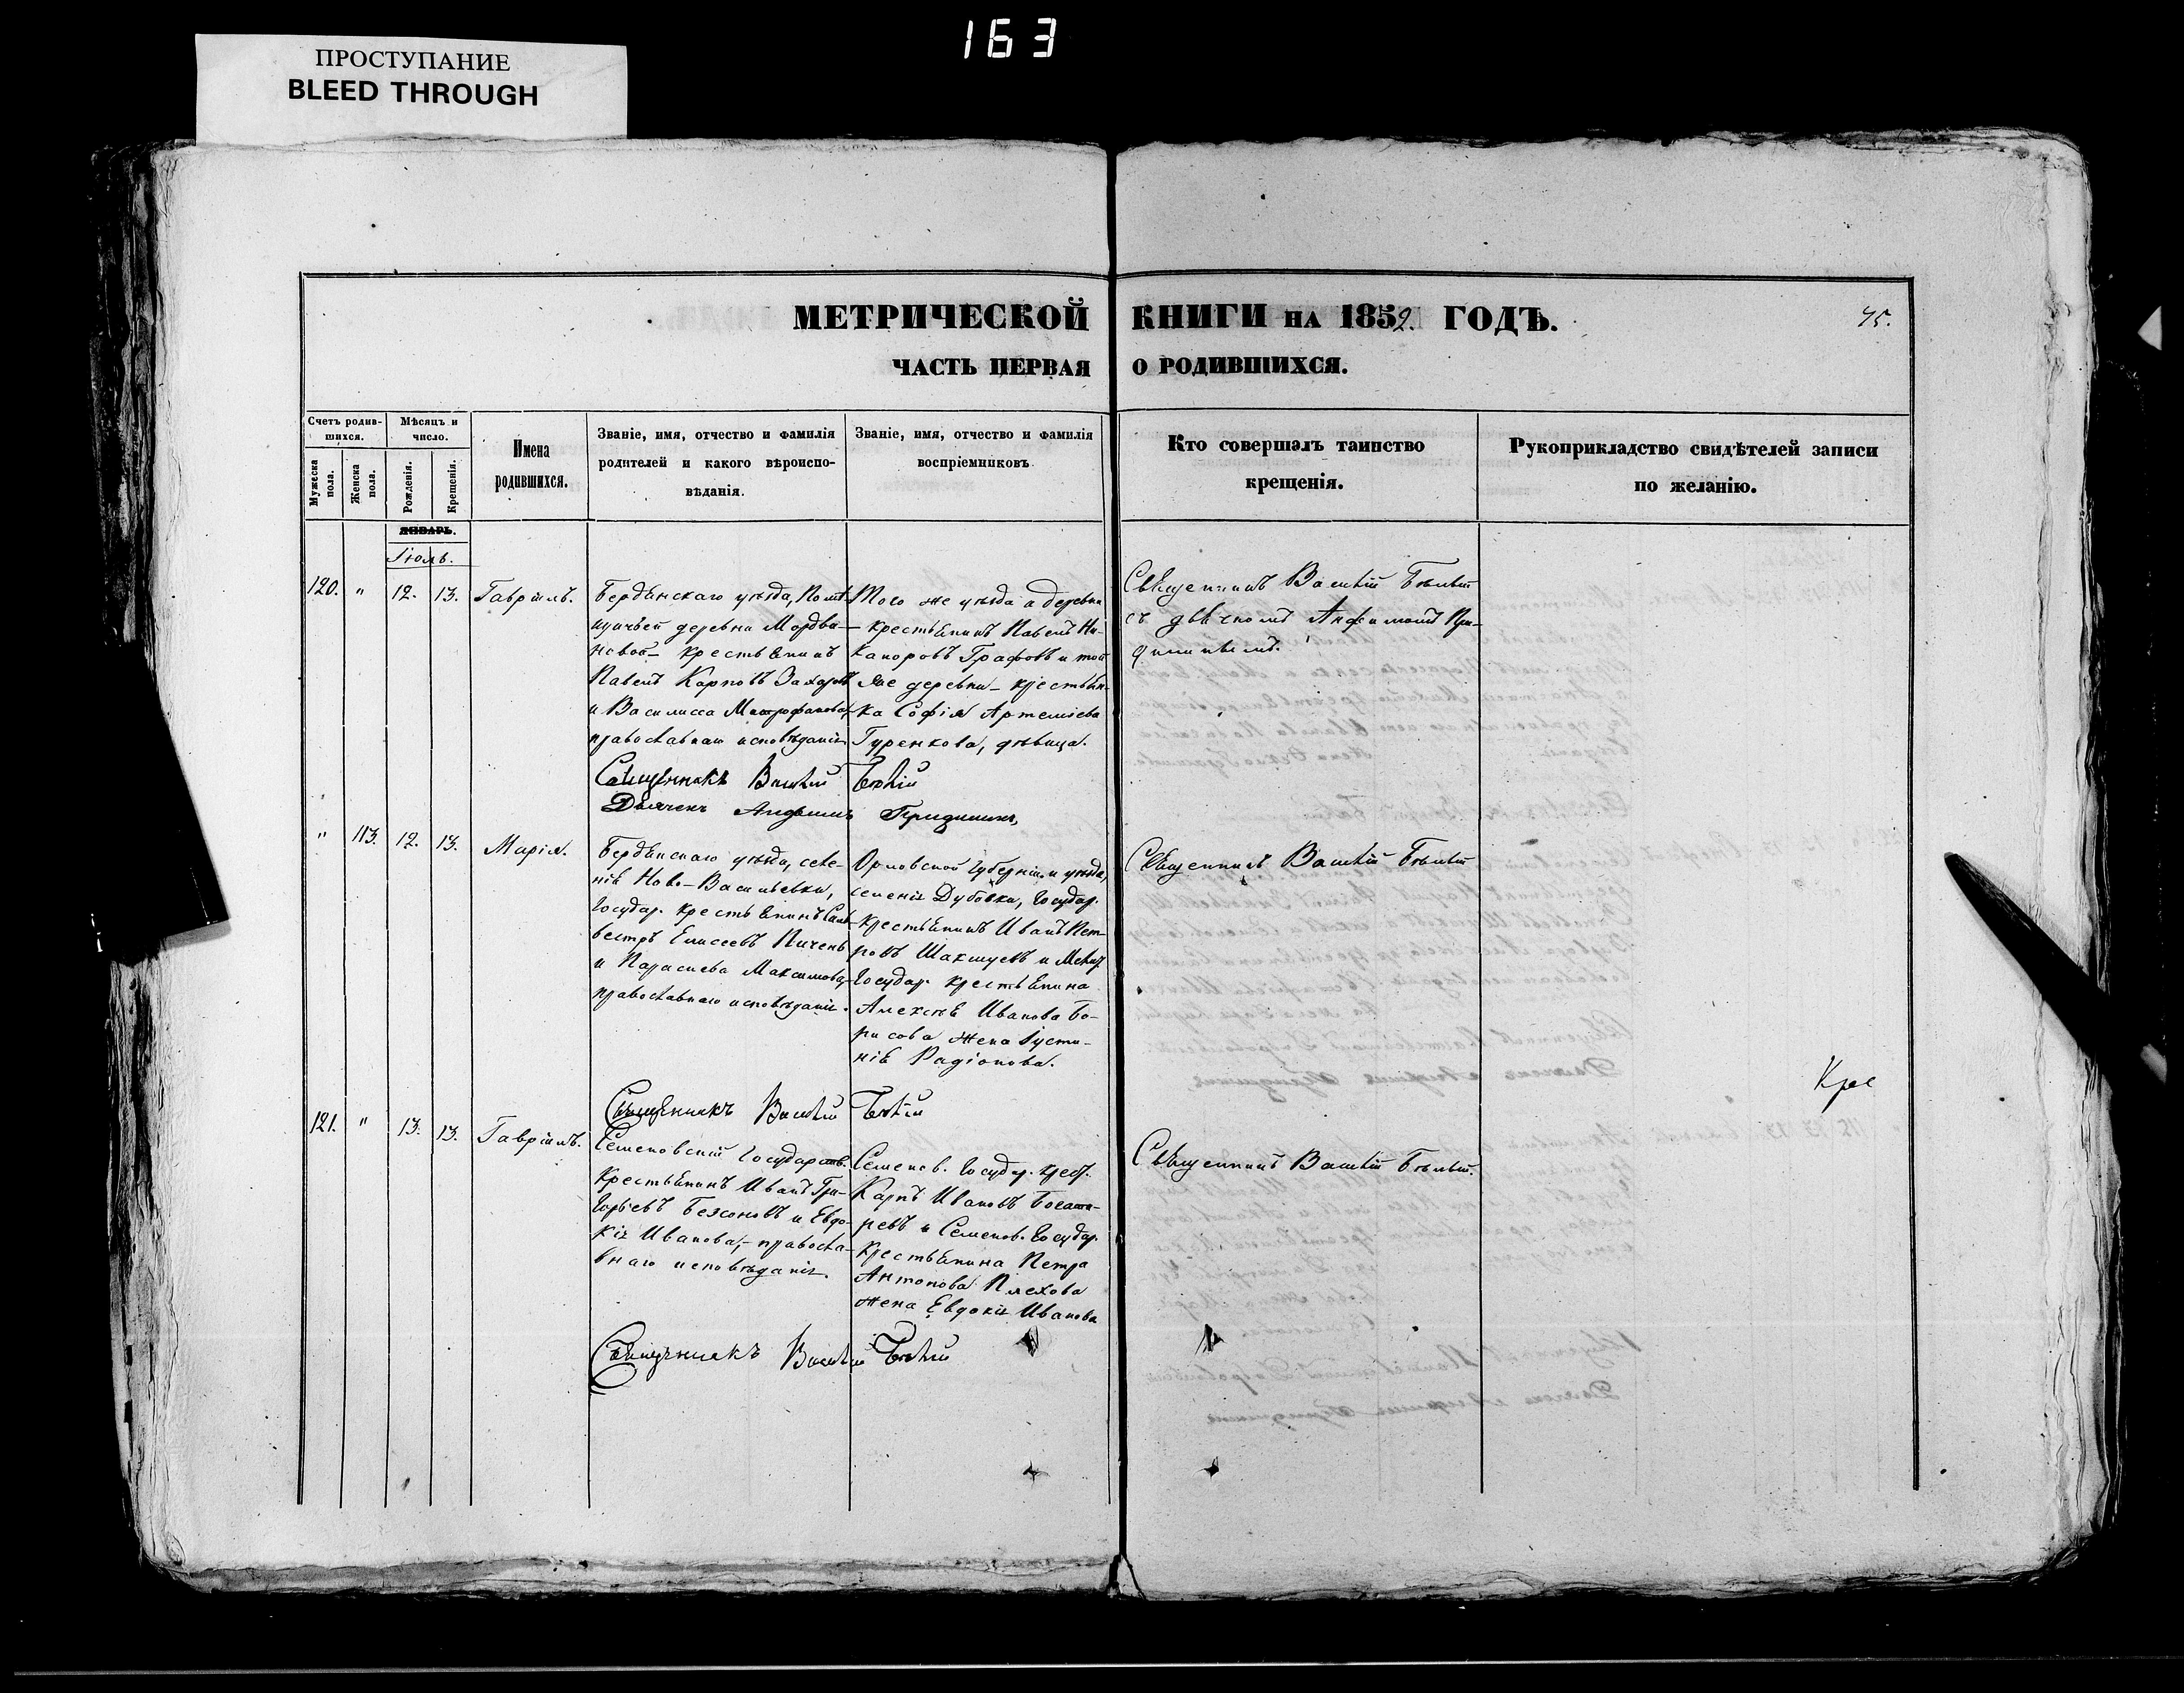 163
ПРОСТУПАНИЕ
BLEED THROUGH
МЕТРИЧЕСКОЙ КНИГИ НА 1852. ГОДЪ.
45.
ЧАСТЬ ПЕРВАЯ О РОДИВШИХСЯ.
Счетъ родив-
шихся.
Мужеска пола.
Женска пола.
Мѣсяцъ и
число.
Рожденія.
Крещенія.
Имена
родившихся.
Званіе, имя, отчество и фамилія
родителей и какого вѣроиспо-
вѣданія.
Званіе, имя, отчество и фамилія
воспріемниковъ.
Кто совершалъ таинство
крещенія.
Рукоприкладство свидѣтелей записи
по желанію.
ЯНВАРЬ.
Іюль.
120. " 12. 13. Гавріилъ.
Бердянскаго уѣзда, Помѣ-
щичьей деревни Мордви-
новой крестьянинъ
Павелъ Карповъ Захаровъ
и Василисса Митрофанова,
православнаго исповѣданія
Того же уѣзда и деревни
крестьянинъ Павелъ Ни-
каноровъ Графовъ и той
же деревни крестьян-
ка Софія Артеміева
Гуренкова, дѣвица.
Священникъ Василій Бѣлый
съ дьячкомъ Анфимомъ
Священникъ Василій Бѣлый
Дьячекъ Анфимъ
" 113. 12. 13. Марія.
Бердянскаго уѣзда, селе-
нія Ново-Васильевки,
Государ. крестьянинъ Силь-
вестръ Елисеевъ Пичень
и Параскева Максимова,
православнаго исповѣданія.
Орловской Губерніи и уѣзда,
селенія Дубовки, Государ.
крестьянинъ Иванъ Пет-
ровъ и
Государ. крестьянина
Алексѣя Иванова Бо-
рисова жена Іусти-
нія Радіонова.
Священникъ Василій Бѣлый
Священникъ Василій Бѣлый
Кре
121. " 13. 13. Гавріилъ.
Семеновскій Государств.
крестьянинъ Иванъ Гри-
горьевъ и Евдо-
кія Иванова, правосла-
внаго исповѣданія.
Семенов. Государ. крест.
Карпъ Ивановъ Богаты-
ревъ и Семенов. Государ.
крестьянина Петра
Антонова Плехова
жена Евдокія Иванова
Священникъ Василій Бѣлый.
Священникъ Василій Бѣлый